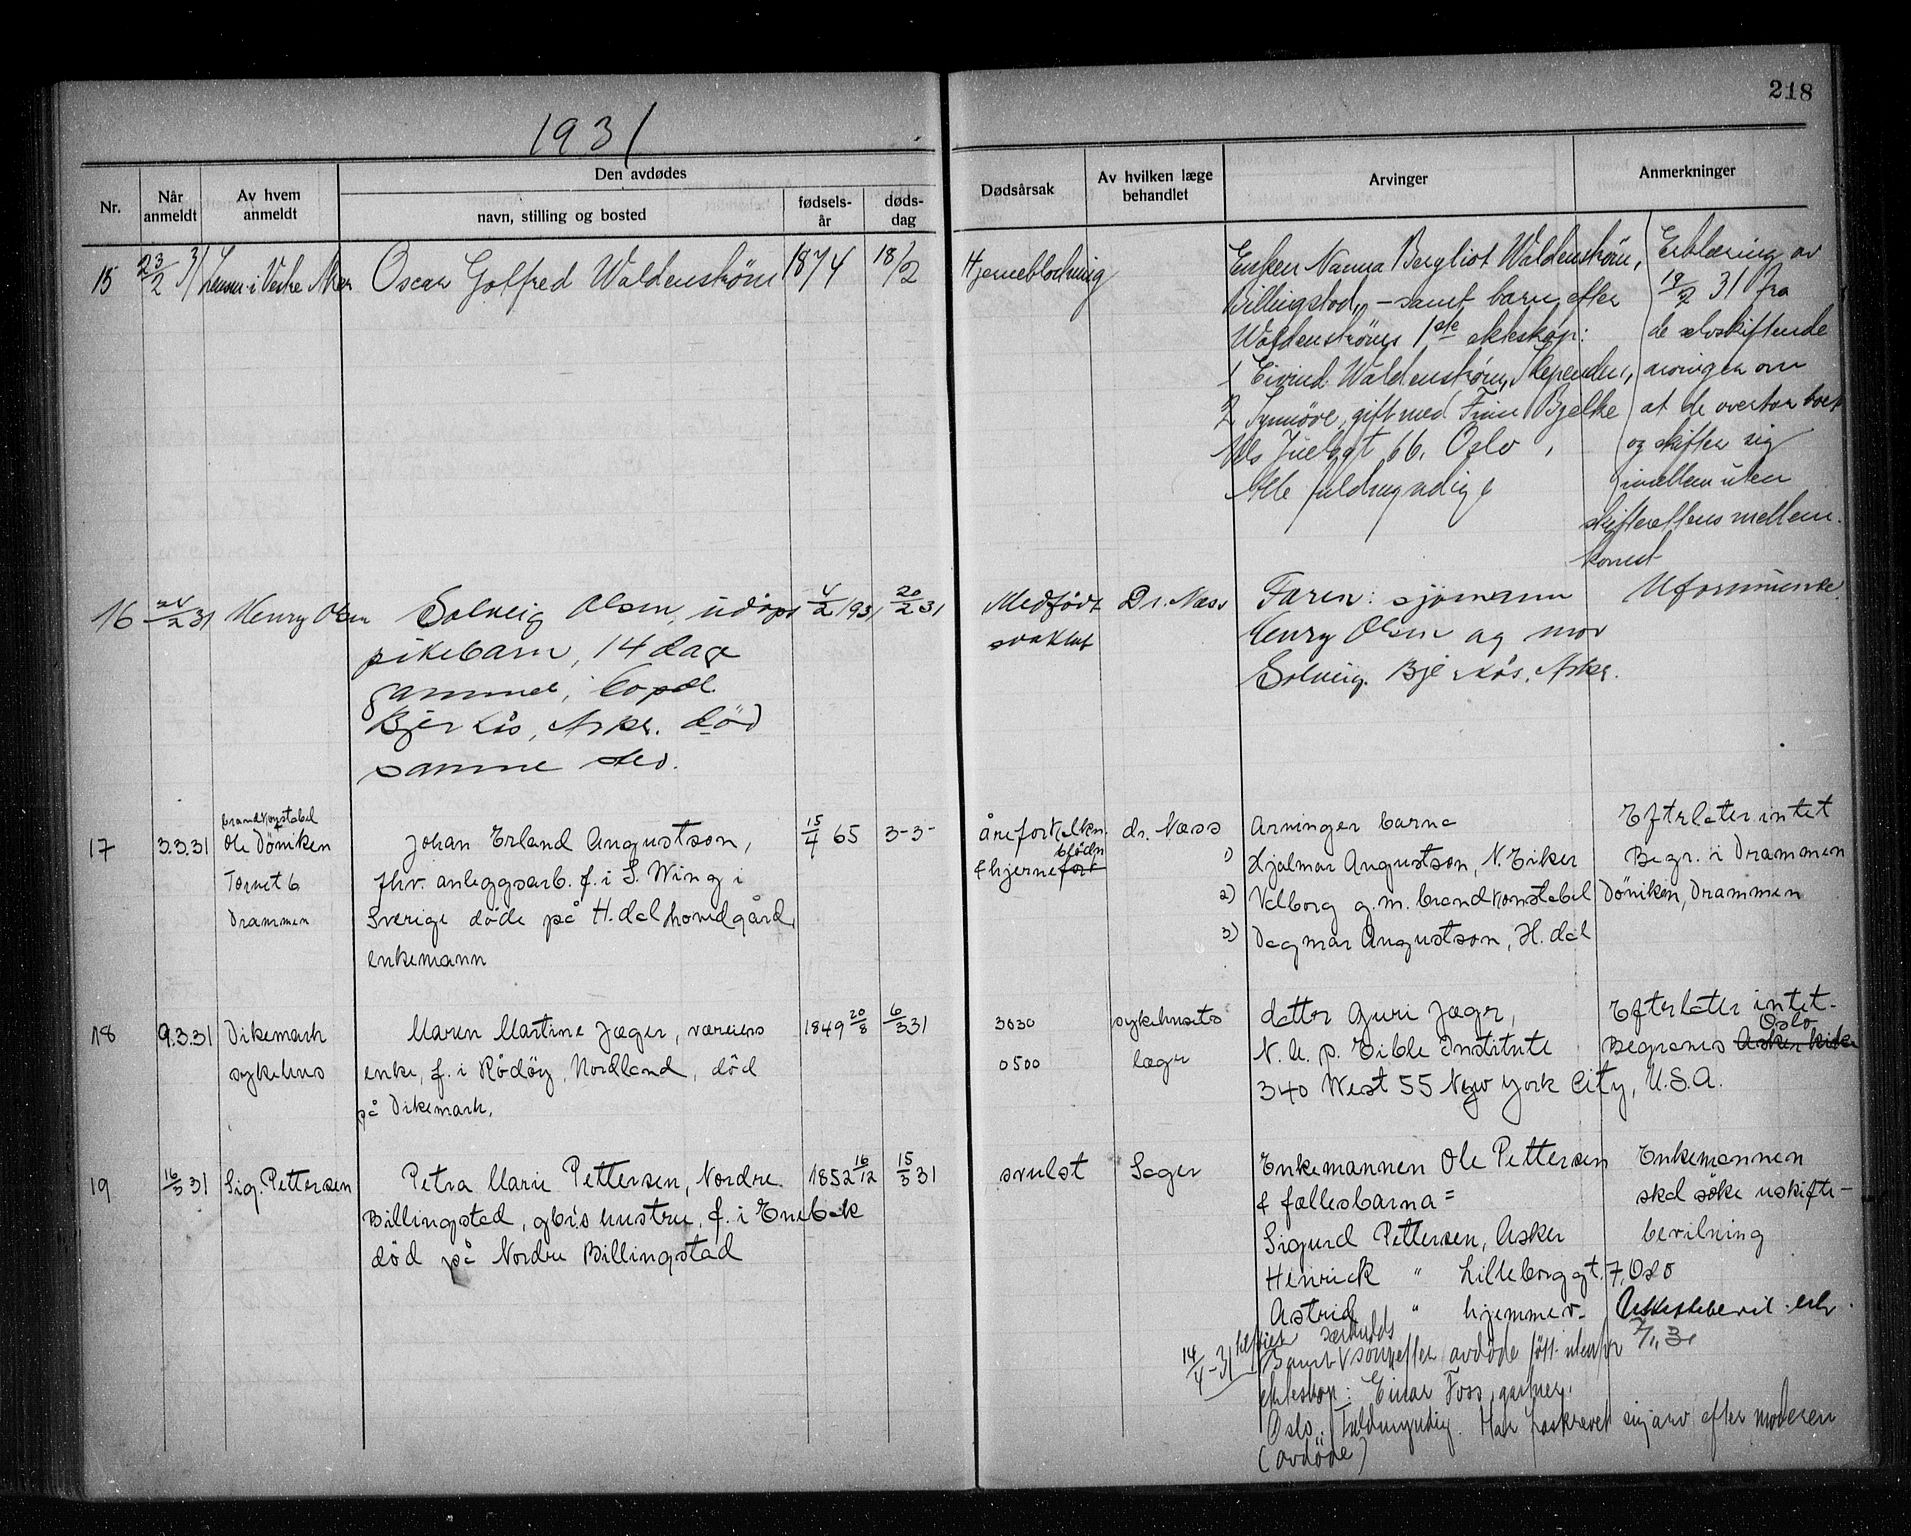 218
1931
Nr.
Når anmeldt
Av hvem anmeldt
Den avdødes
navn, stilling og bosted
fødsels-år
døds-dag
Dødsårsak
Av hvilken læge behandlet
Arvinger
Anmerkninger
15
23/2 31
Lensm. i Vestre Aker
Oscar Gotfred Waldenstrøm
1874
18/2
Hjerneblødning
Enken Nanna Bergliot Waldenstrøm,
Billingstad, – samt barn efter
Waldenstrøms 1ste ekteskap:
1 Eivind Waldenstrøm, Slependen,
2 Synnöve, gift med Finn Bjelke
Nils Juelsgt 66, Oslo,
Alle fuldmyndige
Erklæring av
19/2 31 fra
de selvskiftende
arvinger om
at de overtar boet
og skifter sig
imellem uten
skifterettens mellem-
komst
16
24/2 31
Henry Olsen
Solveig Olsen, udöpt
pikebarn, 14 dage
gammel,
Bjerkås, Asker. död
samme sted.
4/2 1931
20/2 31
Medfødt
svakhet
Dr. Næss
Faren: sjömann
Henry Olsen og mor
Solveig. Bjerkås, Asker.
Uformuende.
17
3.3.31
brandkonstabel
Ole Döniken
Tornet 6
Drammen
Johan Erland Augustson,
fhv. anleggsarb. f. i S. Wing i
Sverige döde på H.dal hovedgård,
enkemann
15/4 65
3-3-
åreforkalkn.
& hjerneblödn
dr. Næss
Arvinger barna
1) Hjalmar Augustson, N. Eiker
2) Valborg g.m. brandkonstabel Döniken, Drammen
3) Dagmar Augustson, H.dal
Efterlater intet
Begr. i Drammen
18
9.3.31
Dikemark
sykehus
Maren Martine Jæger, væreiers
enke, f. i Rödöy, Nordland, död
på Dikemark,
1849 20/8
6/3 31
3030
0500
sykehusets
læger
datter Guri Jæger,
N. U. p. Bible Institute
340 West 55 New York City, U.S.A.
Efterlater intet-
Begraves Asker kirke Oslo
19
16/3 31
Sig. Pettersen
Petra Marie Pettersen, Nordre
Billingstad, gbr.s hustru, f. i Enebak
död på Nordre Billingstad
1852 16/12
15/3 31
svulst
Sager
Enkemannen Ole Pettersen
& fællesbarna =
Sigurd Pettersen, Asker
Henrick " Lilleborggt. 7, Oslo
Astrid " hjemmev.
Enkemannen
skal söke uskifte-
bevilning
Uskiftebevil.
14/4-31 tilföiet særkulds
Samt sön efter avdöde fött utenfor
ekteskap: Einar Foss, gartner,
Oslo. Fuldmyndig. Har fraskrevet sig arv efter moderen
(avdöde)